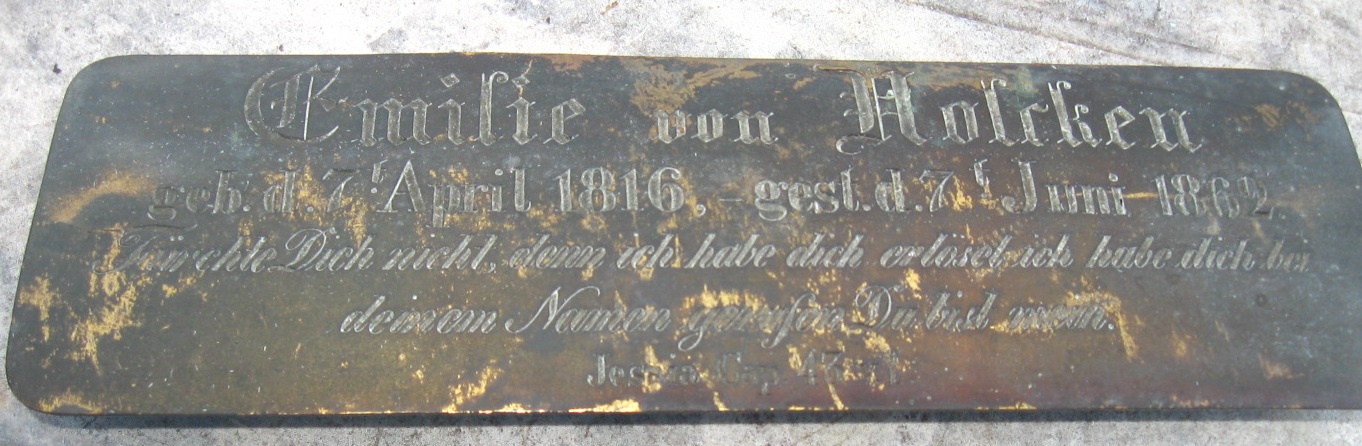 Emilie von Holcken
geb. d. 7t April 1816, – gest. d. 7t Juni 1862.
Fürchte Dich nicht, denn ich habe dich erlöset, ich habe dich bei
deinem Namen gerufen Du bist mein.
Jesaia Cap. 43